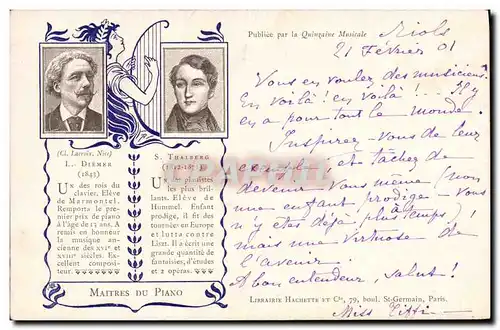 Publiée par la Quinzaine Musicale
Riols
21 Février 01
Vous en voulez des musiciens
En voilà! en voilà!... Il y
en a pour tout le monde.
Inspirez vous de leur
exemple et tâchez de
devenir vous même (non
une enfant prodige vous
n'y êtes déjà plus à temps)!
mais une virtuose de
l'avenir.
A bon entendeur, salut!
(Cl. Larroix, Nice)
L. DIÉMER
(1843)
UN des rois du
clavier. Elève
de Marmontel.
Remporta le pre-
mier prix de piano
à l'âge de 13 ans. A
remis en honneur
la musique an-
cienne des XVIe et
XVIIe siècles. Ex-
cellent composi-
teur.
S. THALBERG
UN des pianistes
les plus bril-
lants. Elève de
Hummel. Enfant
prodige, il fit des
tournées en Europe
et lutta contre
Liszt. Il a écrit une
grande quantité de
fantaisies, d'études
et 2 opéras.
MAITRES DU PIANO
LIBRAIRIE HACHETTE ET Cie, 79, boul. St-Germain, Paris.
Miss